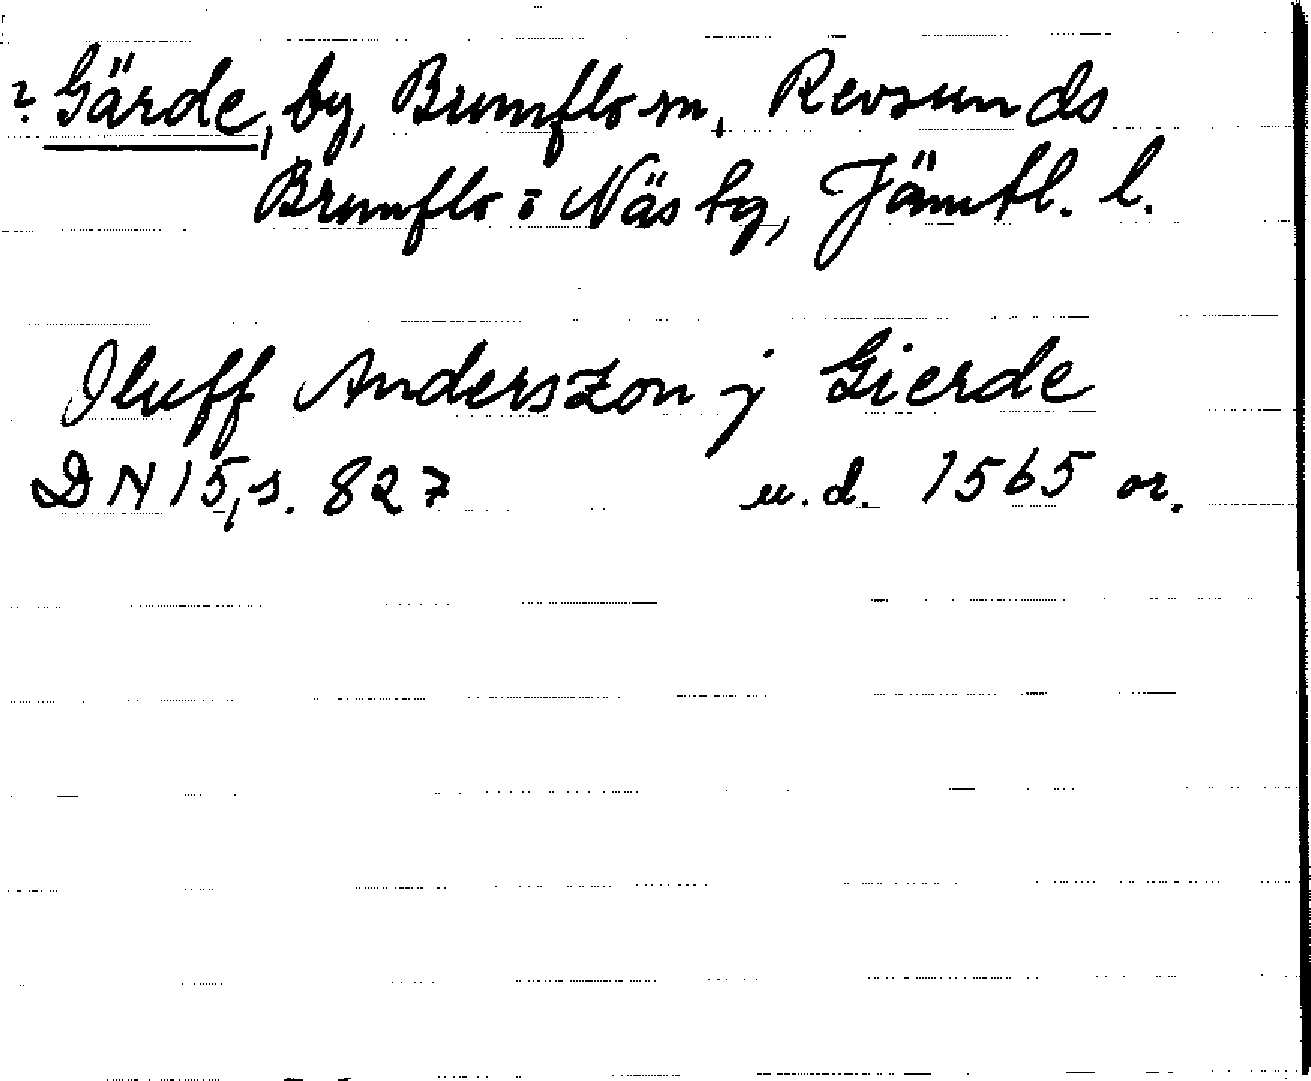 ? Gärde, by, Brunflo sn, Revsunds
Brunflo o Näs tg, Jämtl. l.
Iluff Anderszon j Gierde
DN 15, s. 827 u.d. 1565 or.